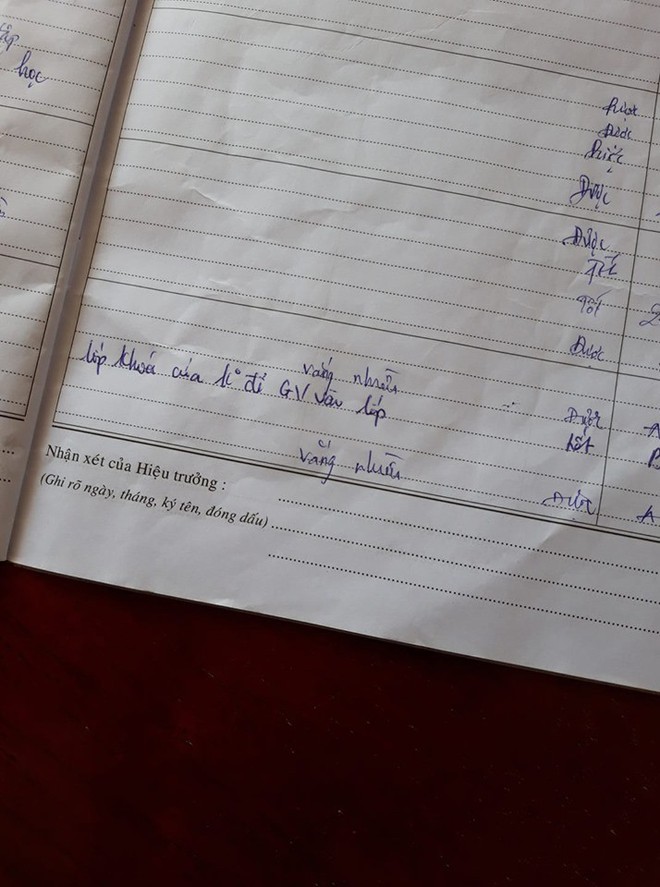 học
Được
Được
Được
Tốt
Tốt
Được
vắng nhiều
lớp khoá cửa k° để GV vào lớp
Được
tốt
vắng nhiều
Được
A
B
A
Nhận xét của Hiệu trưởng :
(Ghi rõ ngày, tháng, ký tên, đóng dấu)